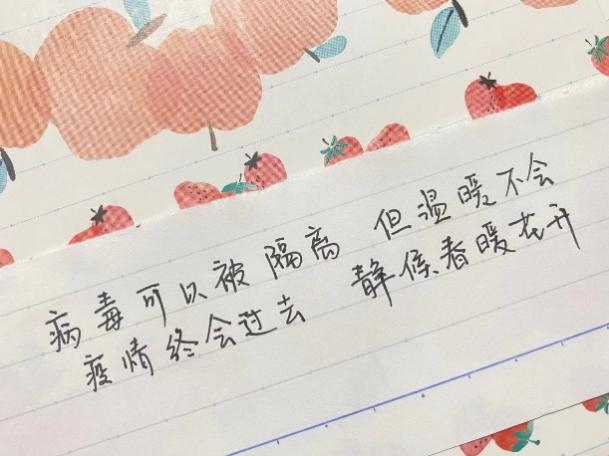 病毒可以被隔离 但温暖不会
疫情终会过去 静候春暖花开